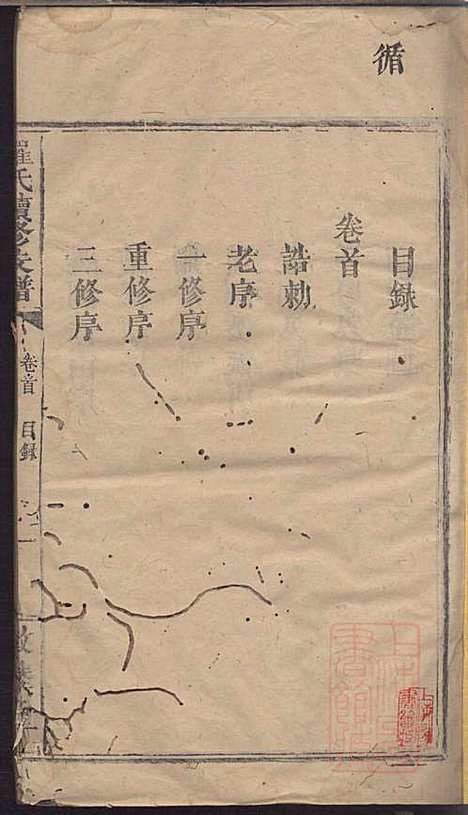 循
目錄
卷首
誥勅
老序
一修序
重修序
三修序
羅氏續修族譜
卷首 目錄
一
敦